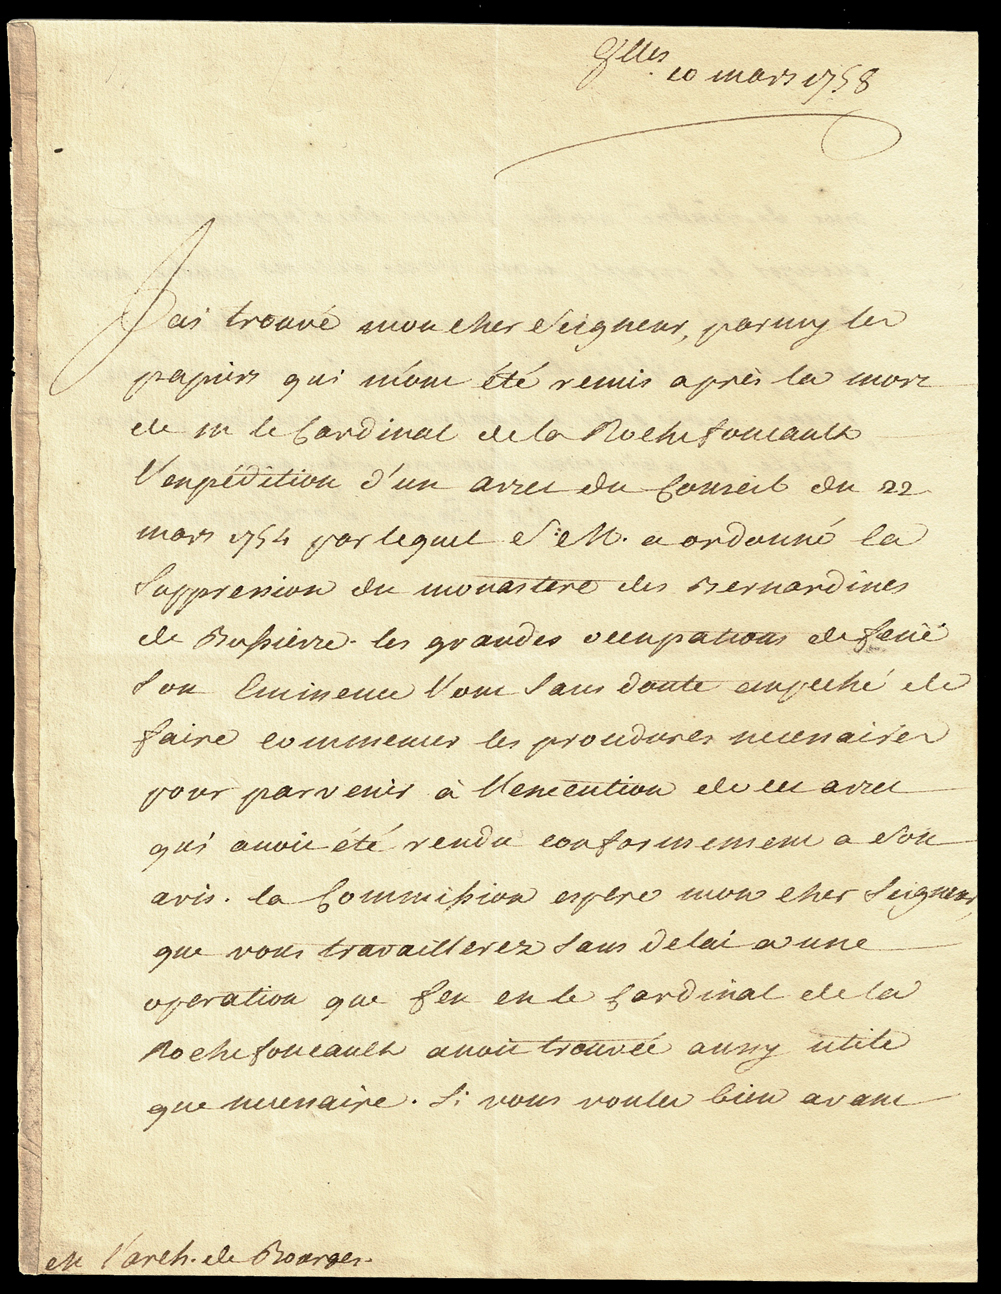 Vlles
10 mars 1758
J'ai trouvé mon cher Seigneur, parmy les
papiers qui m'ont été remis après la mort
de m le Cardinal de la Rochefoucault
l'expédition d'un arret du Conseil du 22
mars 1754 par lequel S. M. a ordonné la
Suppression du monastere des Bernardines
de Bussierre. les grandes occupations de feüe
Son Eminence l'ont Sans doute empeché de
faire commencer les procedures necessaires
pour parvenir à l'execution de cet arret
qui avoit été rendu conformement a Son
avis. la Commission espere mon cher Seigneur,
que vous travaillerez Sans delai a une
operation que feu M le Cardinal de la
Rochefoucault avoit trouvée aussy utile
que necessaire. Si vous voulez bien avant
M l'arch. de Bourges.